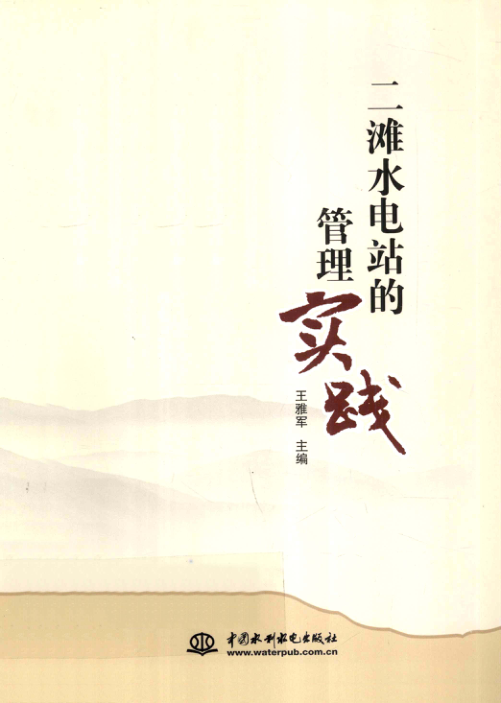 二滩水电站的
管理
实践
王雅军 主编
中国水利水电出版社
www.waterpub.com.cn